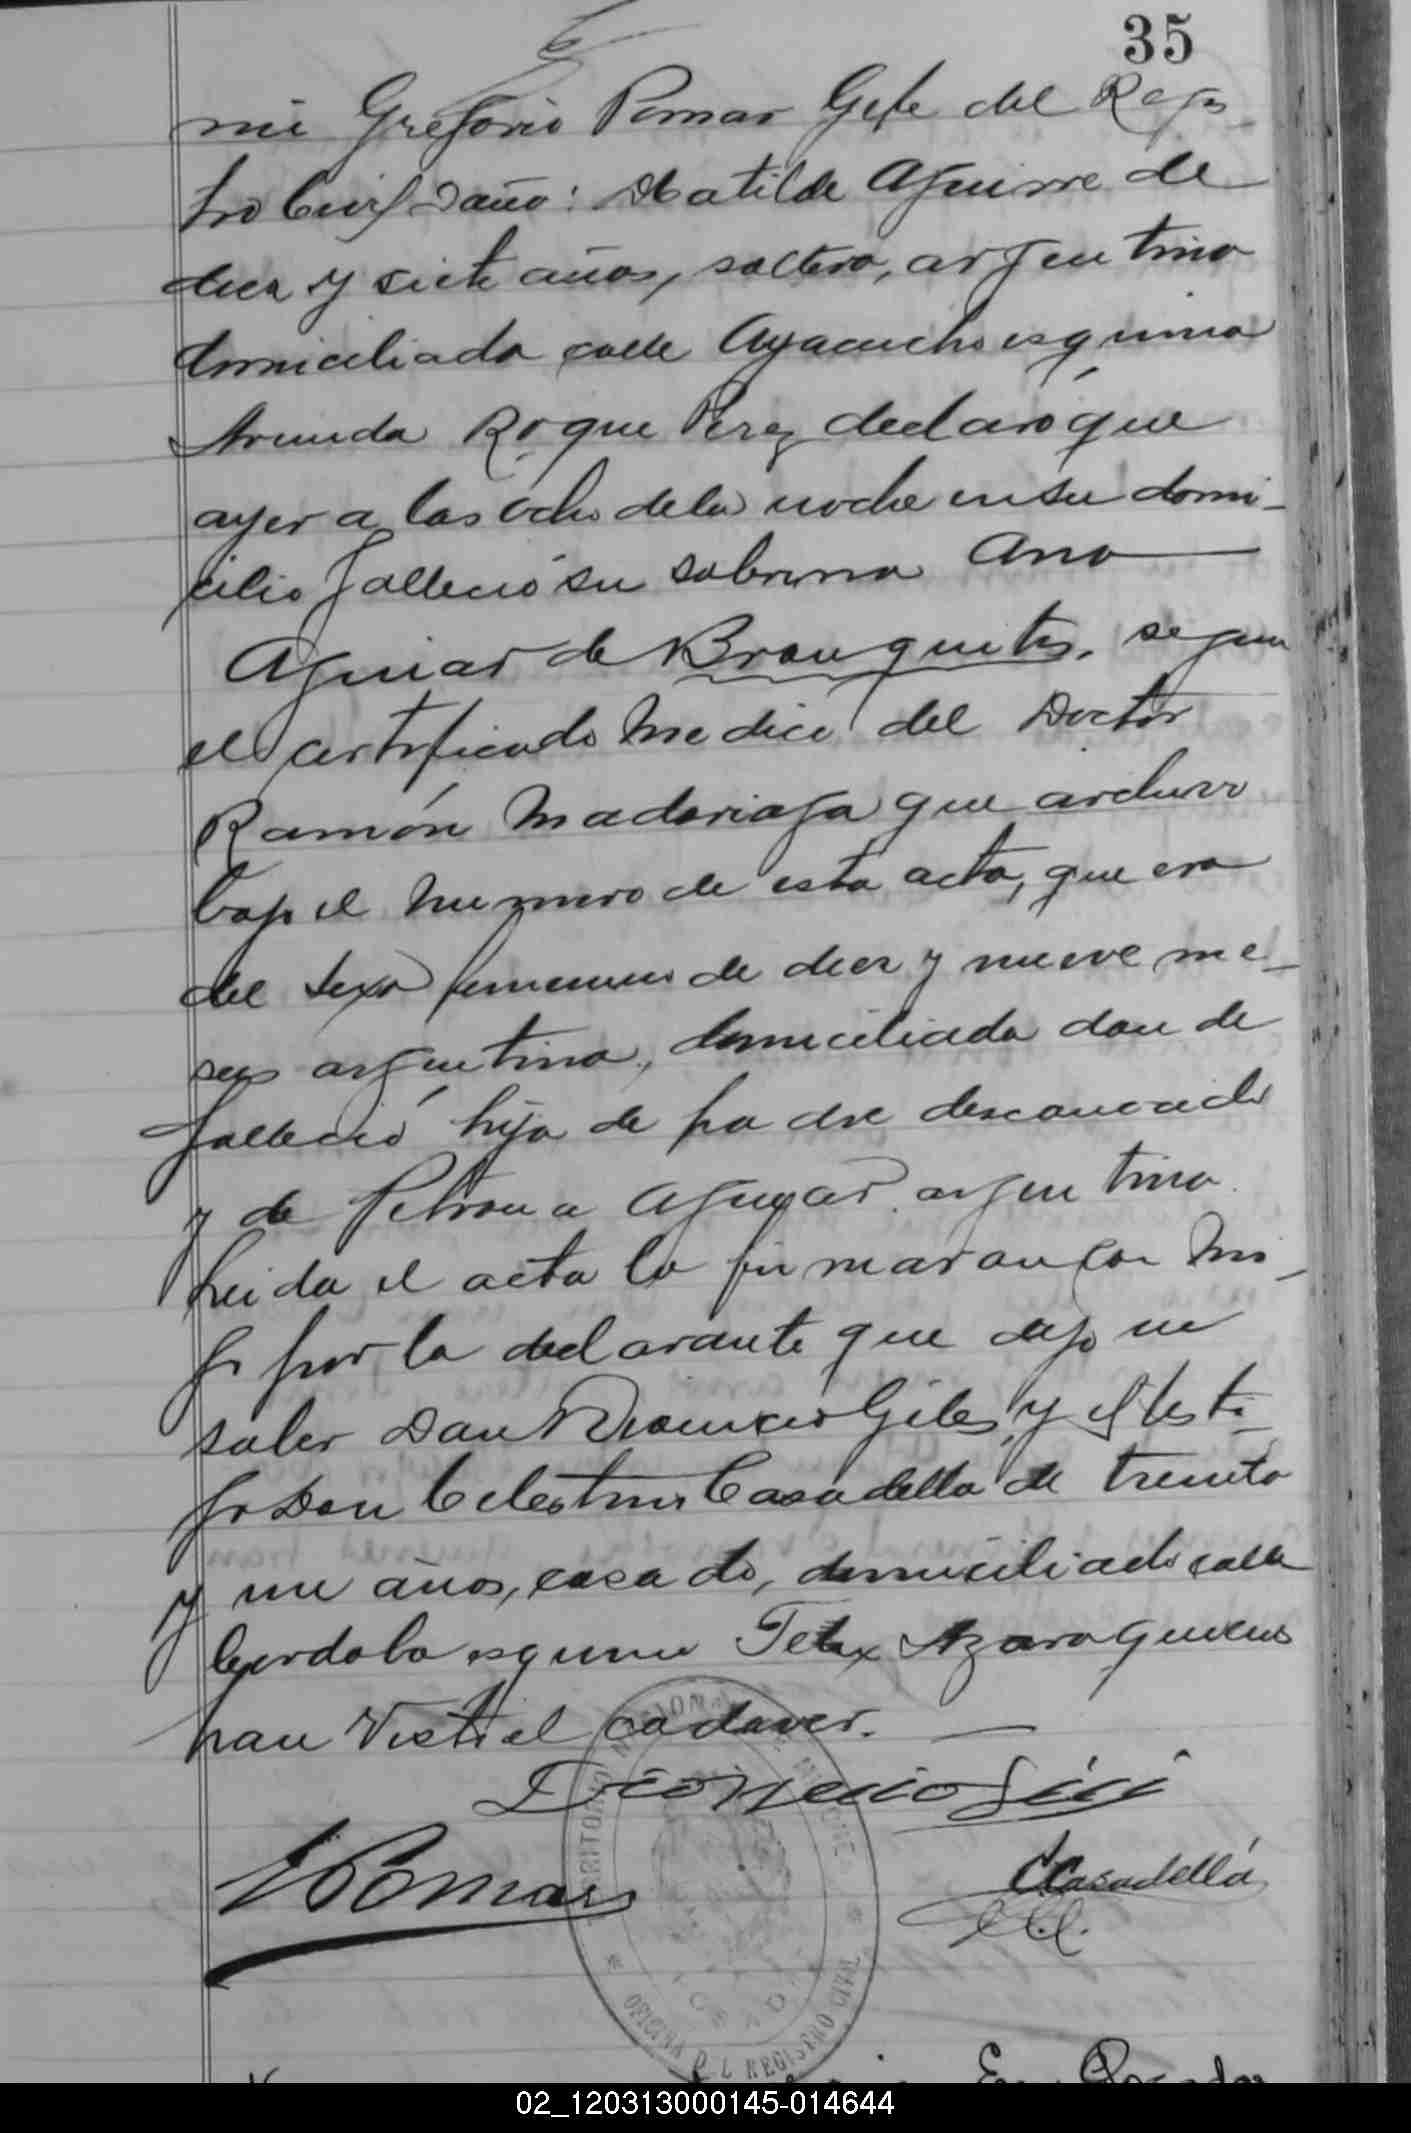 35
mi Gregorio Pomar Gefe del Regis
tro Civil Daño: Matilde Aguirre de
diez y siete años, soltera, argentina
domiciliada calle Ayacucho esquina
Avenida Roque Perez declaró que
ayer a las ocho de la noche en su domi-
cilio falleció su sobrina Ana
Aguiar de Branquites, segun
el certificado Medico del Doctor
Ramón Madariaga que archivo
bajo el numero de esta acta, que era
del sexo femenino de diez y nueve me-
ses argentina, domiciliada donde
falleció hija de padre desconocido
y de Petrona Aguyar argentina.
Leida el acta la firmaron con mi-
go por la declarante que dijo no
saber Don Dionicio Giles y el testi-
go Don Celestino Casadella de treinta
y un años, casado, domiciliado calle
Cordoba esquina Felix Azara quienes
han visto el cadaver.
Dionicio
Pomar
CCasadellá
TERRITORIO NACIONAL DE MISIONES
OFICINA DEL REGISTRO CIVIL
POSADAS
02_120313000145-014644